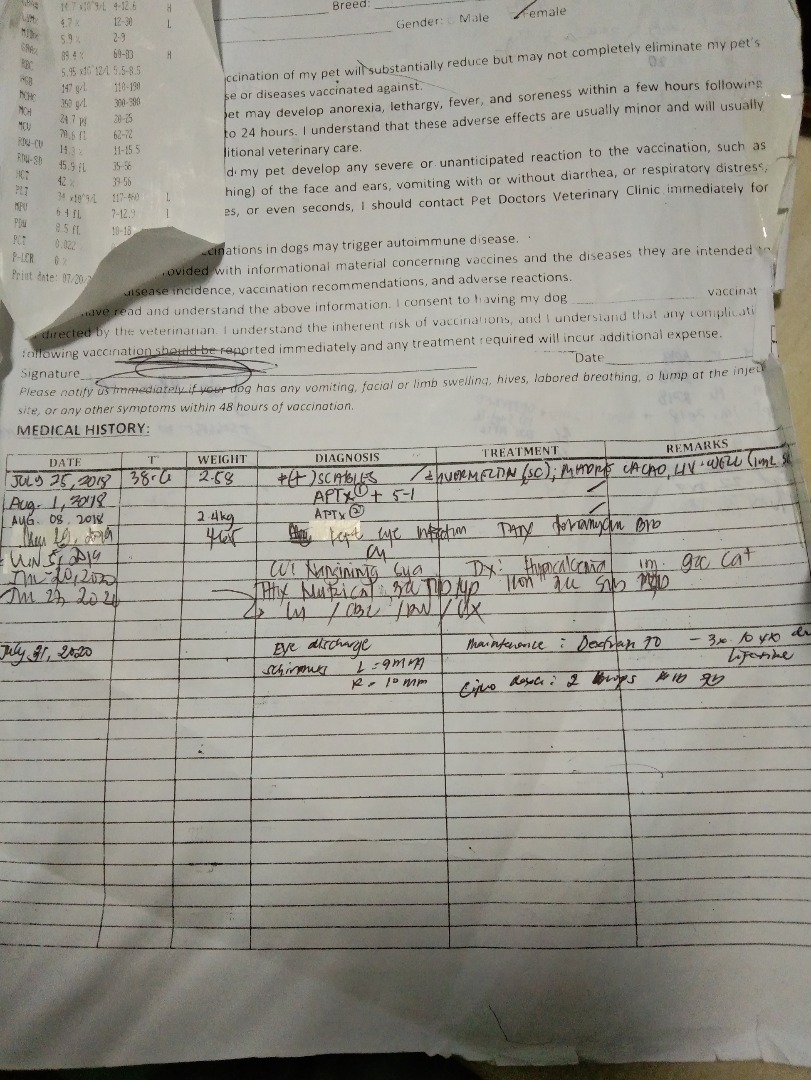 14.7 x10^9/L 4-12.6 H
4.7 % 12-30 L
5.9 % 2-9
89.4 % 60-83 H
RBC 5.95 x10^12/L 5.5-8.5
HGB 147 g/L 110-190
MCHC 350 g/L 300-380
MCH 24.7 pg 20-25
MCV 70.6 fL 62-72
RDW-CV 14.3 % 11-15.5
RDW-SD 45.9 fL 35-56
HCT 42 % 39-56
PLT 34 x10^9/L 117-460 L
MPV 6.4 fL 7-12.9 L
PDW 8.5 fL 10-18
PCT 0.022
P-LCR 0 %
Print date: 07/20/2
Breed:
Gender: Male Female
ccination of my pet will substantially reduce but may not completely eliminate my pet's
se or diseases vaccinated against.
pet may develop anorexia, lethargy, fever, and soreness within a few hours following
to 24 hours. I understand that these adverse effects are usually minor and will usually
ditional veterinary care.
d my pet develop any severe or unanticipated reaction to the vaccination, such as
hing) of the face and ears, vomiting with or without diarrhea, or respiratory distress,
es, or even seconds, I should contact Pet Doctors Veterinary Clinic immediately for
ccinations in dogs may trigger autoimmune disease.
rovided with informational material concerning vaccines and the diseases they are intended to
disease incidence, vaccination recommendations, and adverse reactions.
have read and understand the above information. I consent to having my dog vaccinat
directed by the veterinarian. I understand the inherent risk of vaccinations, and I understand that any complicati
following vaccination should be reported immediately and any treatment required will incur additional expense.
Signature Date
Please notify us immediately if your dog has any vomiting, facial or limb swelling, hives, labored breathing, a lump at the inject
site, or any other symptoms within 48 hours of vaccination.
MEDICAL HISTORY:
DATE T° WEIGHT DIAGNOSIS TREATMENT REMARKS
JULY 25, 2018 38.6 2.58 (+) SCABIES IVERMECTIN (SC); CACAO, LIV-WELL (1mL
Aug. 1, 2018 APTX ① + 5-1
AUG. 08, 2018 2.4kg APTX ②
2019 eye infection tobramycin
JUN 5, 2019
Jan 20, 2020 Dx: Hypocalcemia
July 31, 2020 Eye discharge Maintenance: Dextran 70 - 3x
lifetime
Schirmer's L = 9mm
R = 10 mm 2 drops